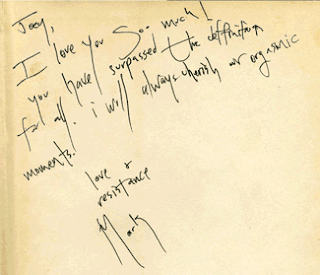 Joey,
I love you soo much!
you have surpassed the deffinition
for all. i will always cherish our orgasmic
moments.
love &
resistance
Mark